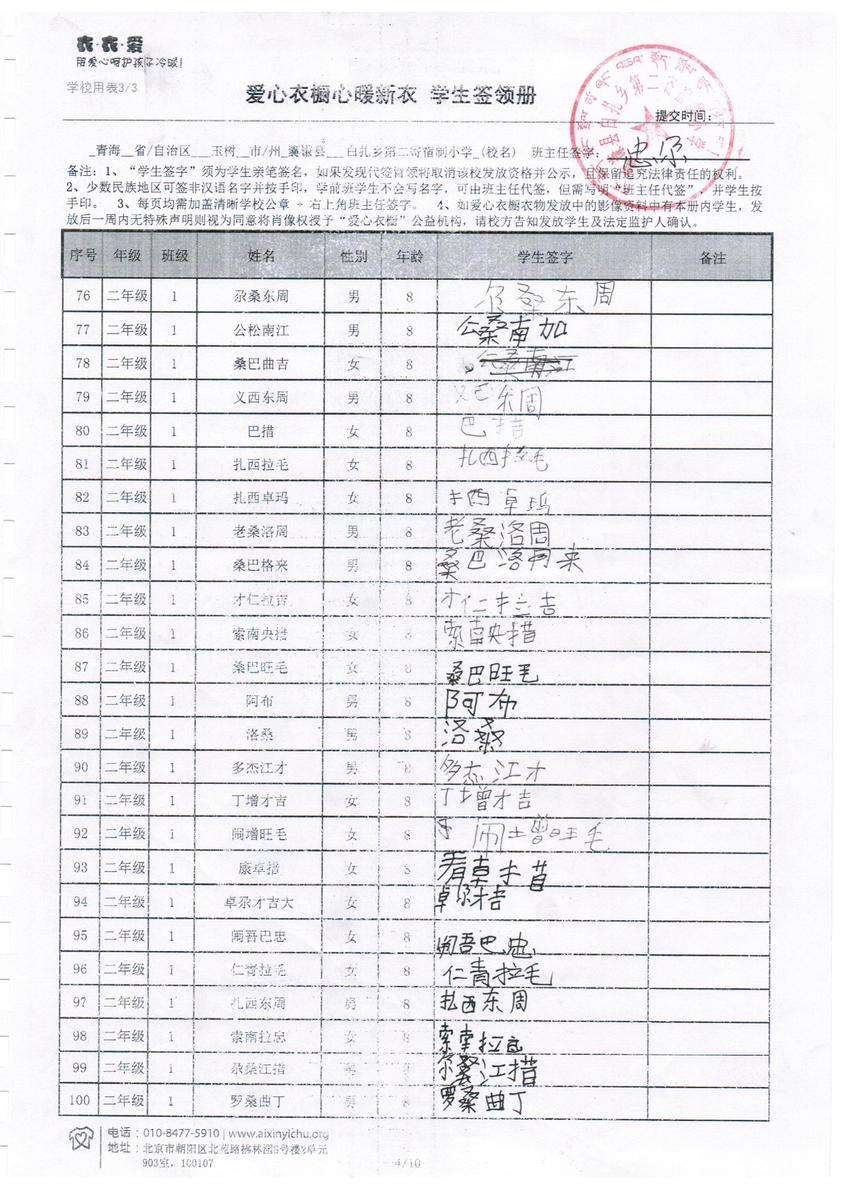 衣·衣·爱
用爱心呵护孩子冷暖!
学校用表3/3
爱心衣橱心暖新衣 学生签领册
提交时间:
_青海__省/自治区___玉树__市/州_囊谦县___白扎乡第二寄宿制小学_(校名) 班主任签字:
备注:1、“学生签字”须为学生亲笔签名,如果发现代签冒领将取消该校发放资格并公示,且保留追究法律责任的权利。
2、少数民族地区可签非汉语名字并按手印,学前班学生不会写名字,可由班主任代签,但需写明“班主任代签”,并学生按
手印。 3、每页均需加盖清晰学校公章 + 右上角班主任签字。 4、如爱心衣橱衣物发放中的影像资料中有本册内学生,发
放后一周内无特殊声明则视为同意将肖像权授予“爱心衣橱”公益机构,请校方告知发放学生及法定监护人确认。
序号 年级 班级 姓名 性别 年龄 学生签字 备注
76 二年级 1 尕桑东周 男 8 尕桑东周
77 二年级 1 公松南江 男 8 公桑南加
78 二年级 1 桑巴曲吉 女 8
79 二年级 1 义西东周 男 8 义西东周
80 二年级 1 巴措 女 8 巴措
81 二年级 1 扎西拉毛 女 8 扎西拉毛
82 二年级 1 扎西卓玛 女 8 扎西卓玛
83 二年级 1 老桑洛周 男 8 老桑洛周
84 二年级 1 桑巴格来 男 8 桑巴洛周来
85 二年级 1 才仁拉吉 女 8 才仁拉吉
86 二年级 1 索南央措 女 8 索南央措
87 二年级 1 桑巴旺毛 女 8 桑巴旺毛
88 二年级 1 阿布 男 8 阿布
89 二年级 1 洛桑 男 8 洛桑
90 二年级 1 多杰江才 男 8 多杰江才
91 二年级 1 丁增才吉 女 8 丁增才吉
92 二年级 1 闹增旺毛 女 8 闹增旺毛
93 二年级 1 康卓措 女 8
94 二年级 1 卓尕才吉大 女 8 卓尕才吉
95 二年级 1 闹吾巴忠 女 8 闹吾巴忠
96 二年级 1 仁青拉毛 女 8 仁青拉毛
97 二年级 1 扎西东周 男 8 扎西东周
98 二年级 1 索南拉忠 女 8 索南拉
99 二年级 1 尕桑江措 男 8 尕桑江措
100 二年级 1 罗桑曲丁 男 8 罗桑曲丁
电话:010-8477-5910 | www.aixinyichu.org
地址:北京市朝阳区北苑路拂林园6号楼2单元
903室,100107
4/10